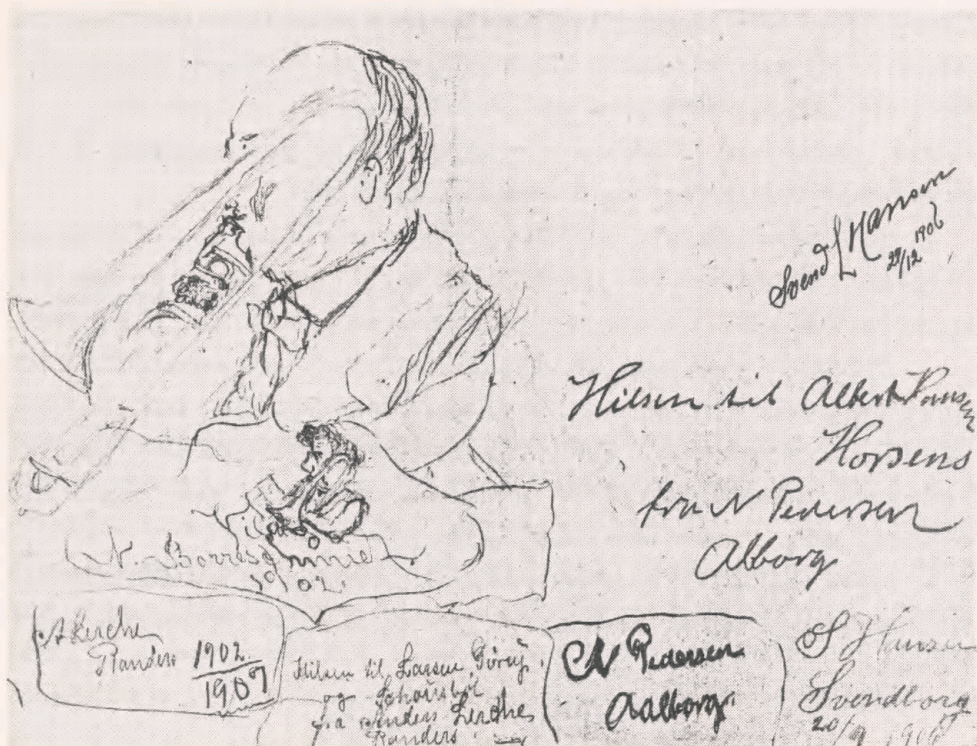 Svend L Hansen
29/12 1906
Hilsen til Albert Hansen
Horsens
fra N Pedersen
Alborg
N. Borres
1902.
A Lerche
Randers 1902
1907
Hilsen til Larsen,
og
fra Anders Lerche
Randers
N Pedersen
Aalborg.
S Hansen
Svendborg
20/9